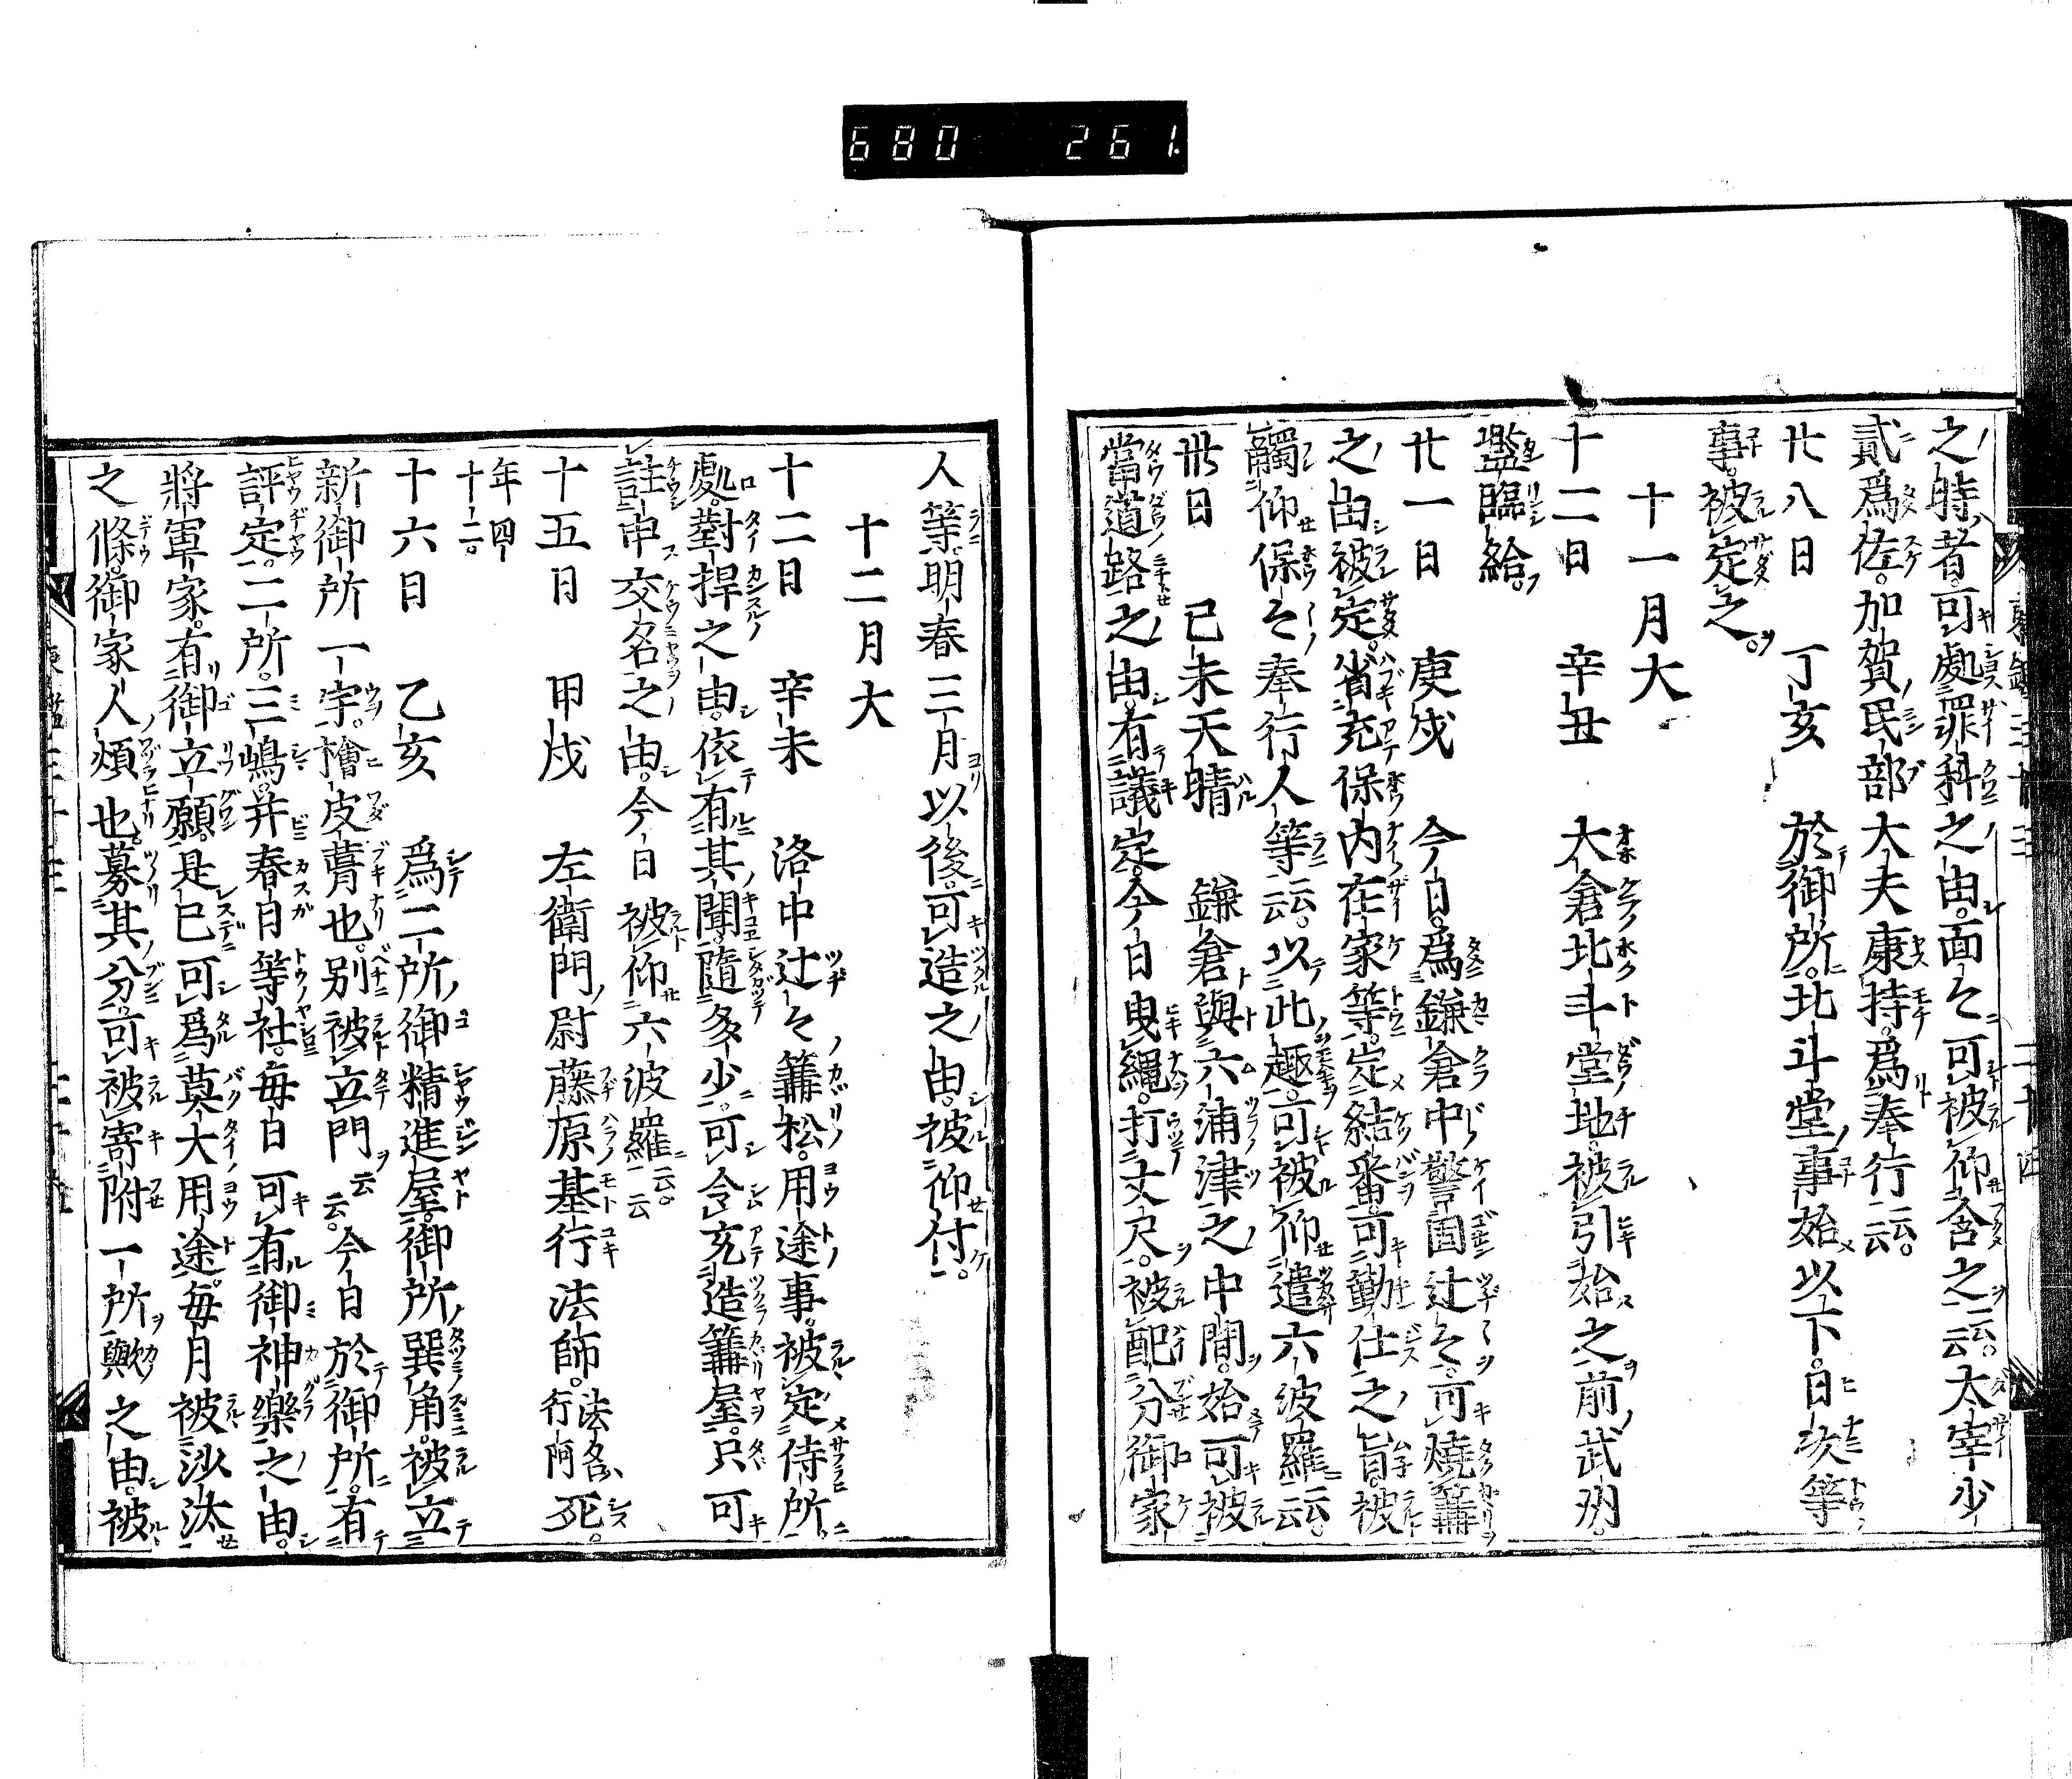 680 261.
之時者。可處罪科之由。面々可被仰含之云云。太宰少
貳爲佐。加賀民部大夫康持。爲奉行云云。
廿八日 丁亥 於御所。北斗堂事始以下。日次等
事。被定之。
十一月大
十二日 辛丑 大倉北斗堂地被引始之。前武州。
監臨給。
廿一日 庚戌 今日。爲鎌倉中警固。辻々。可燒篝
之由被定。省充保内在家等。定結番可勤仕之旨。被
觸仰保々奉行人等云云。以此趣。可被仰遣六波羅云云。
卅日 己未天晴 鎌倉與六浦津之中間。始可被
當道路之由。有議定。今日曳繩。打丈尺。被配分御家
人等。明春三月以後。可造之由。被仰付。
十二月大
十二日 辛未 洛中辻々篝松。用途事。被定侍所
處。對捍之由。依有其聞。隨多少。可令充造篝屋。只可
註申交名之由。今日被仰六波羅云云。
十五日 甲戌 左衛門尉藤原基行法師。法名行阿死。
年四十二。
十六日 乙亥 爲二所御精進屋。御所巽角。被立
新御所一宇。檜皮葺也。別被立門云云。今日於御所。有
評定。二所。三嶋。并春日等社。毎日可有御神樂之由。
將軍家。有御立願。是已可爲莫大用途。毎月被沙汰
之條。御家人煩也。募其分。可被寄附一所歟之由。被